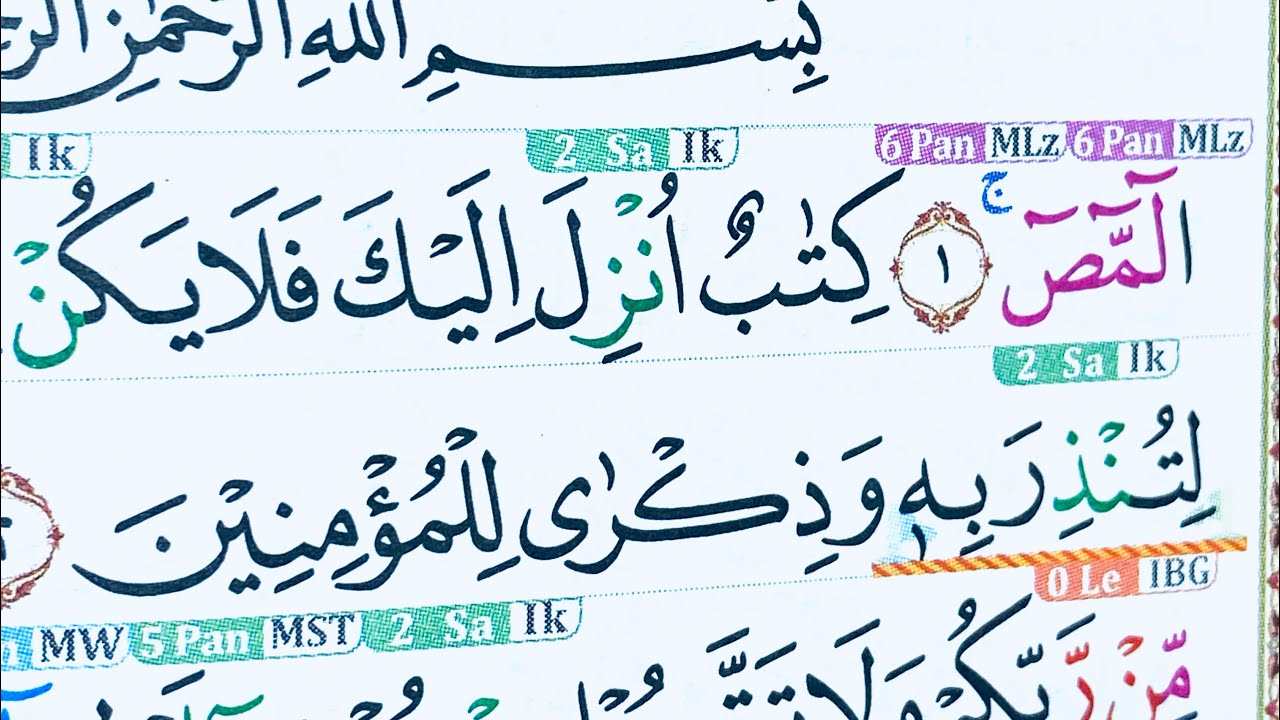 بِسْمِ اللّٰهِ الرَّحْمٰنِ
Ik 2 Sa Ik 6 Pan MLz 6 Pan MLz
الۤمّۤصۤ ۚ ١ كِتٰبٌ اُنْزِلَ اِلَيْكَ فَلَا يَكُنْ
2 Sa Ik
لِتُنْذِرَ بِهٖ وَذِكْرٰى لِلْمُؤْمِنِيْنَ
0 Le IBG
MW 5 Pan MST 2 Sa Ik
مِّنْ رَّبِّكُمْ وَلَا